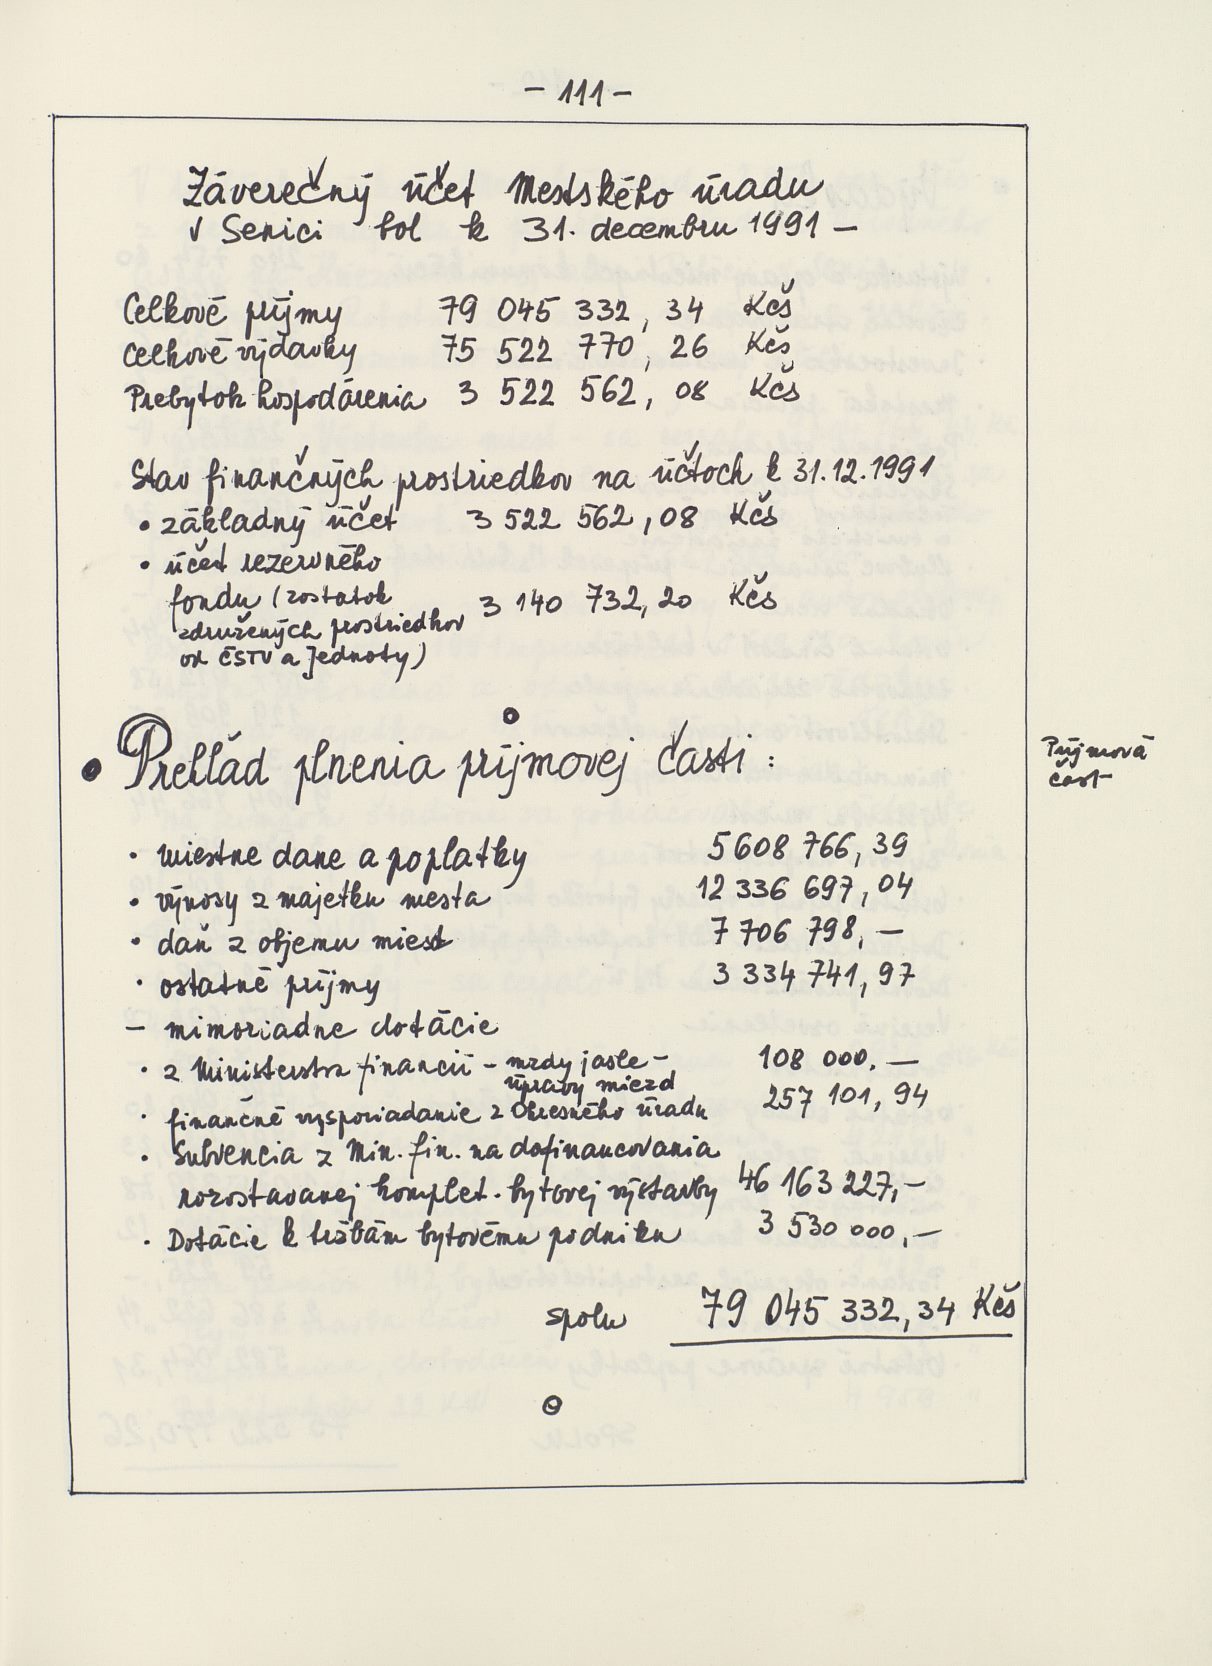 - 111 -
Záverečný účet Mestského úradu
v Senici bol k 31. decembru 1991 -
Celkové príjmy 79 045 332, 34 Kčš
Celkové výdavky 75 522 770, 26 Kčš
Prebytok hospodárenia 3 522 562, 08 Kčš
Stav finančných prostriedkov na účtoch k 31.12.1991
• základný účet 3 522 562,08 Kčš
• účet rezervného
fondu (zostatok
3 140 732,20 Kčš
združených prostriedkov
od ČSTV a Jednoty)
• Prehľad plnenia príjmovej časti :
Príjmová
časť
• miestne dane a poplatky 5 608 766, 39
• výnosy z majetku mesta 12 336 697, 04
• daň z objemu miezd 7 706 798, -
• ostatné príjmy 3 334 741, 97
- mimoriadne dotácie
• z Ministerstva financií - mzdy jasle - 108 000. -
úpravy miezd
• finančné vysporiadanie z Okresného úradu 257 101, 94
• Subvencia z Min. fin. na dofinancovania
rozostavanej komplet. bytovej výstavby 46 163 227,-
• Dotácie k tržbám bytovému podniku 3 530 000,-
spolu 79 045 332,34 Kčš